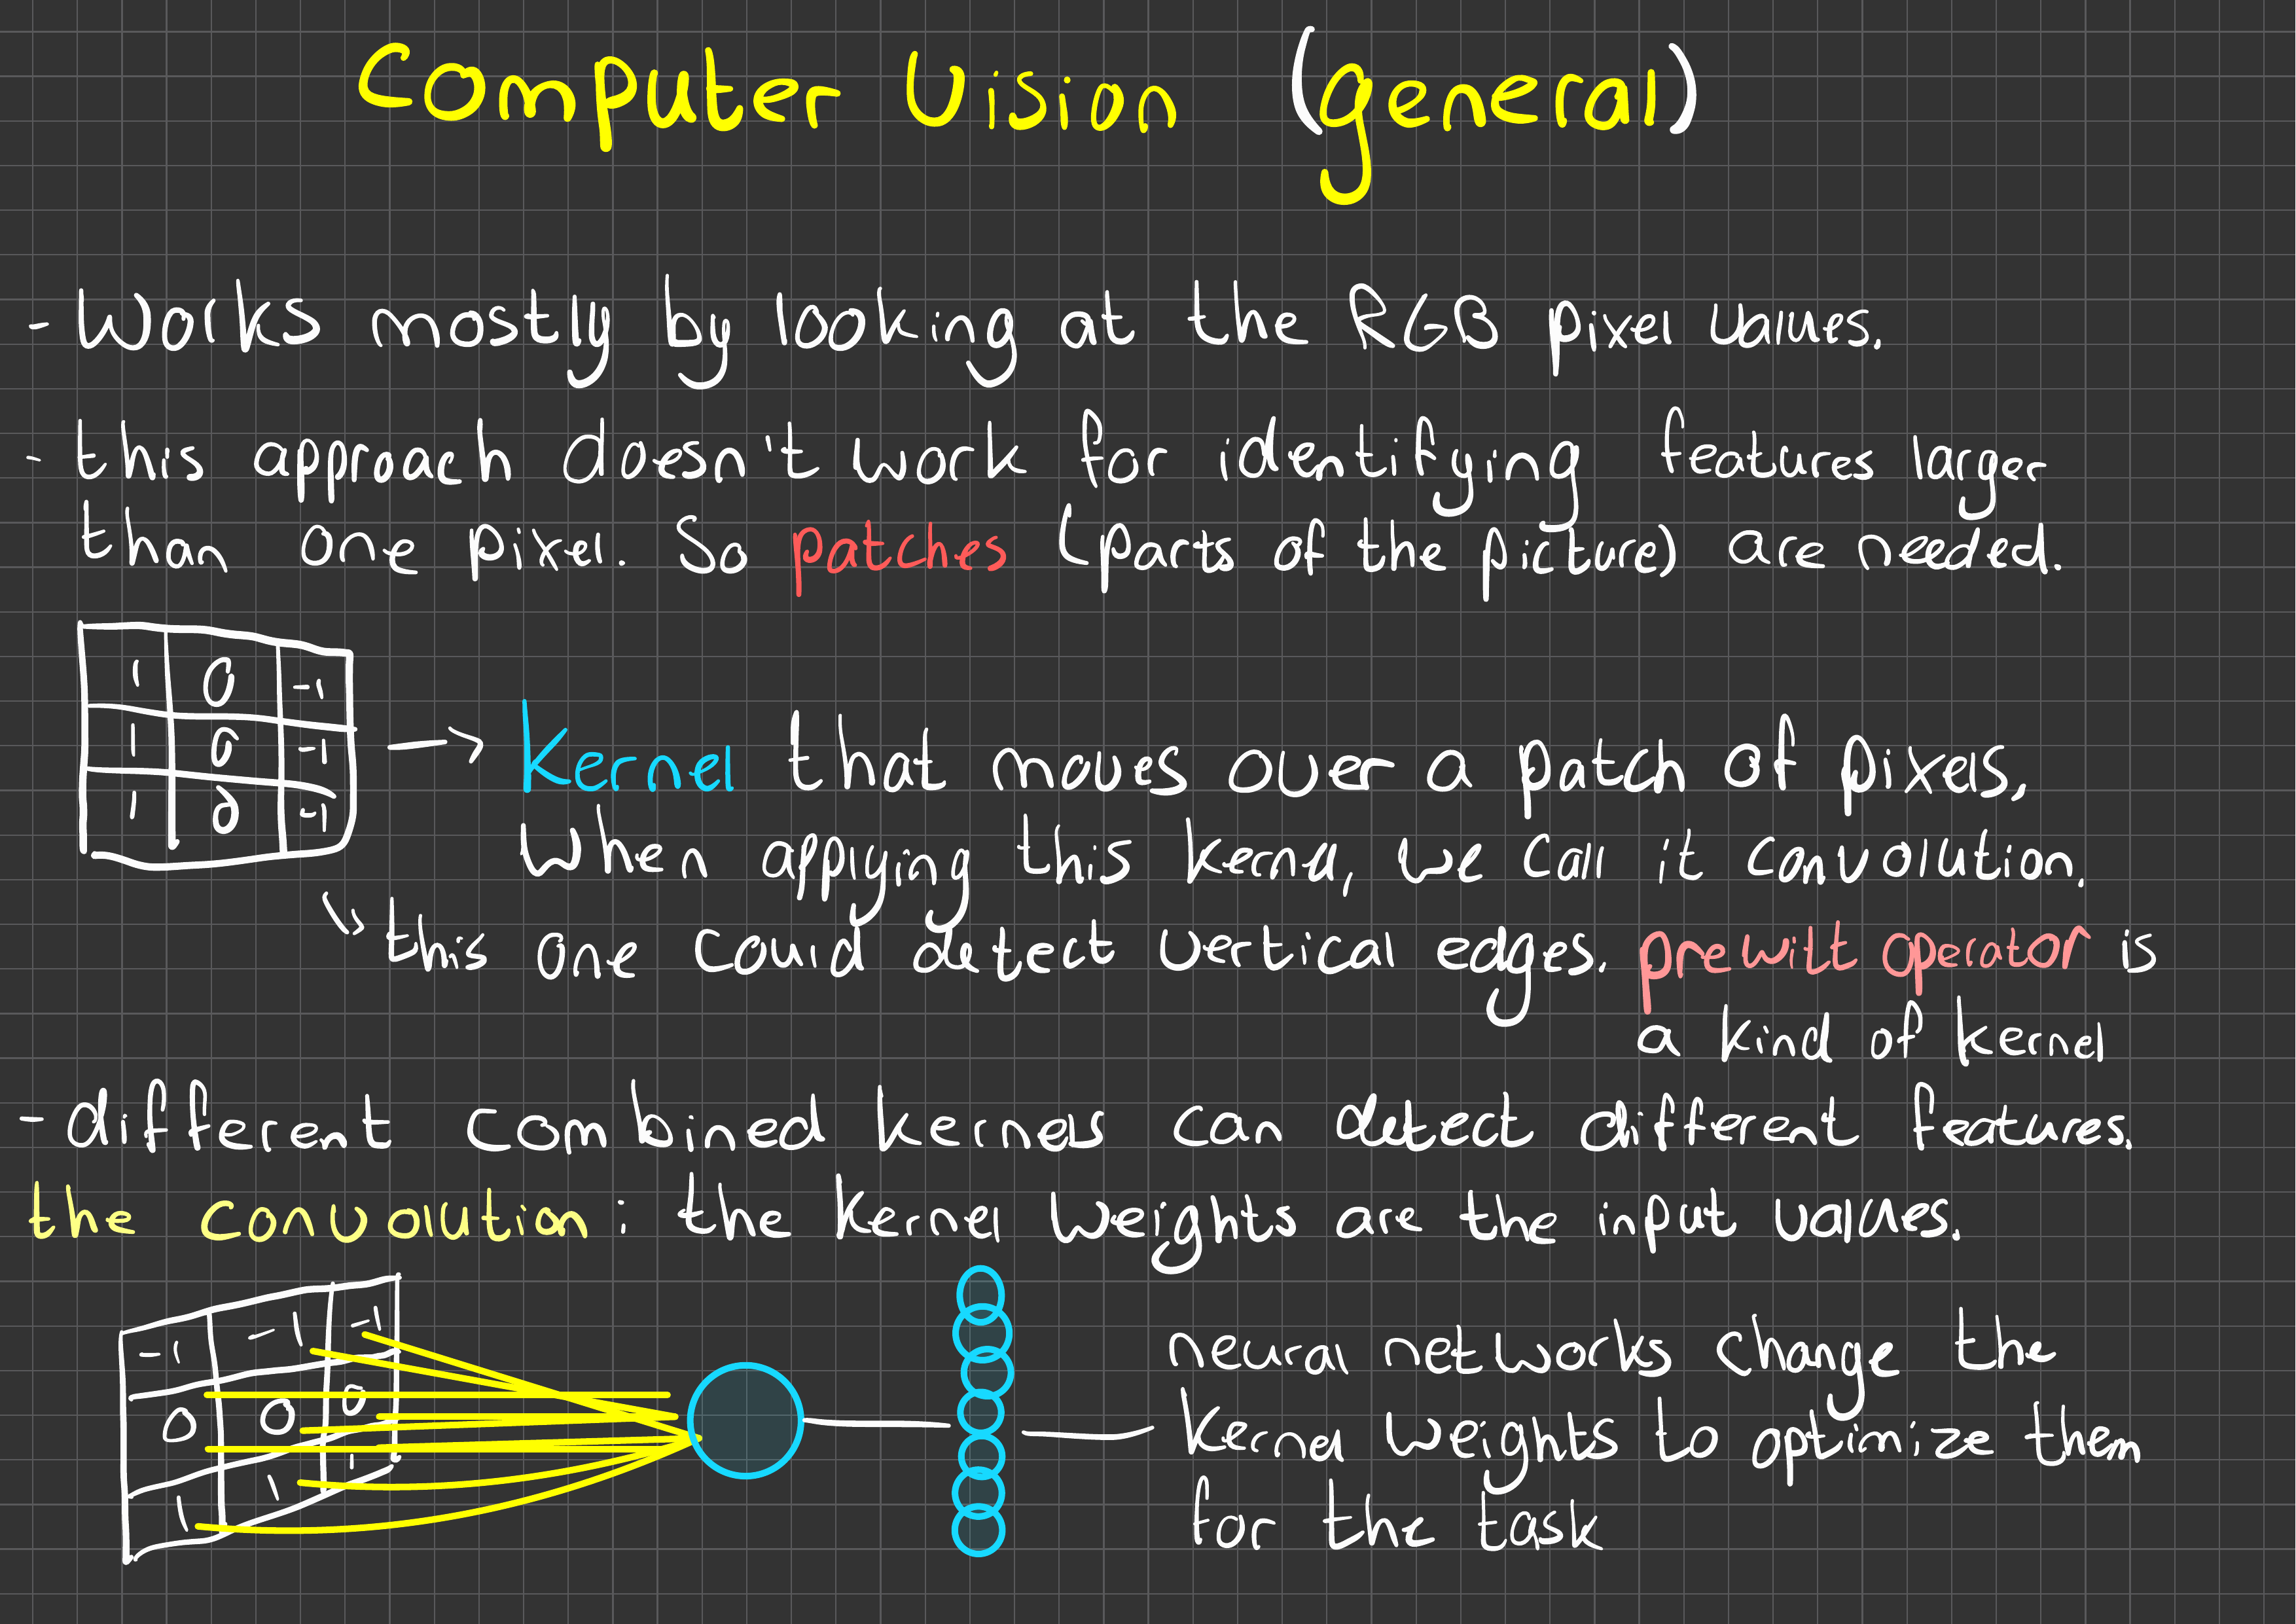 Computer Vision (general)
- Works mostly by looking at the RGB pixel values.
- this approach doesn't work for identifying features larger
than one pixel. So patches (parts of the picture) are needed.
1 0 -1
1 0 -1
1 0 -1
→ Kernel that moves over a patch of pixels.
When applying this kernel, we call it convolution.
this one could detect vertical edges. prewitt operator is
a kind of kernel
- different combined kernels can detect different features.
the convolution: the kernel weights are the input values.
-1 -1 -1
0 0 0
1 1 1
neural networks change the
kernel weights to optimize them
for the task